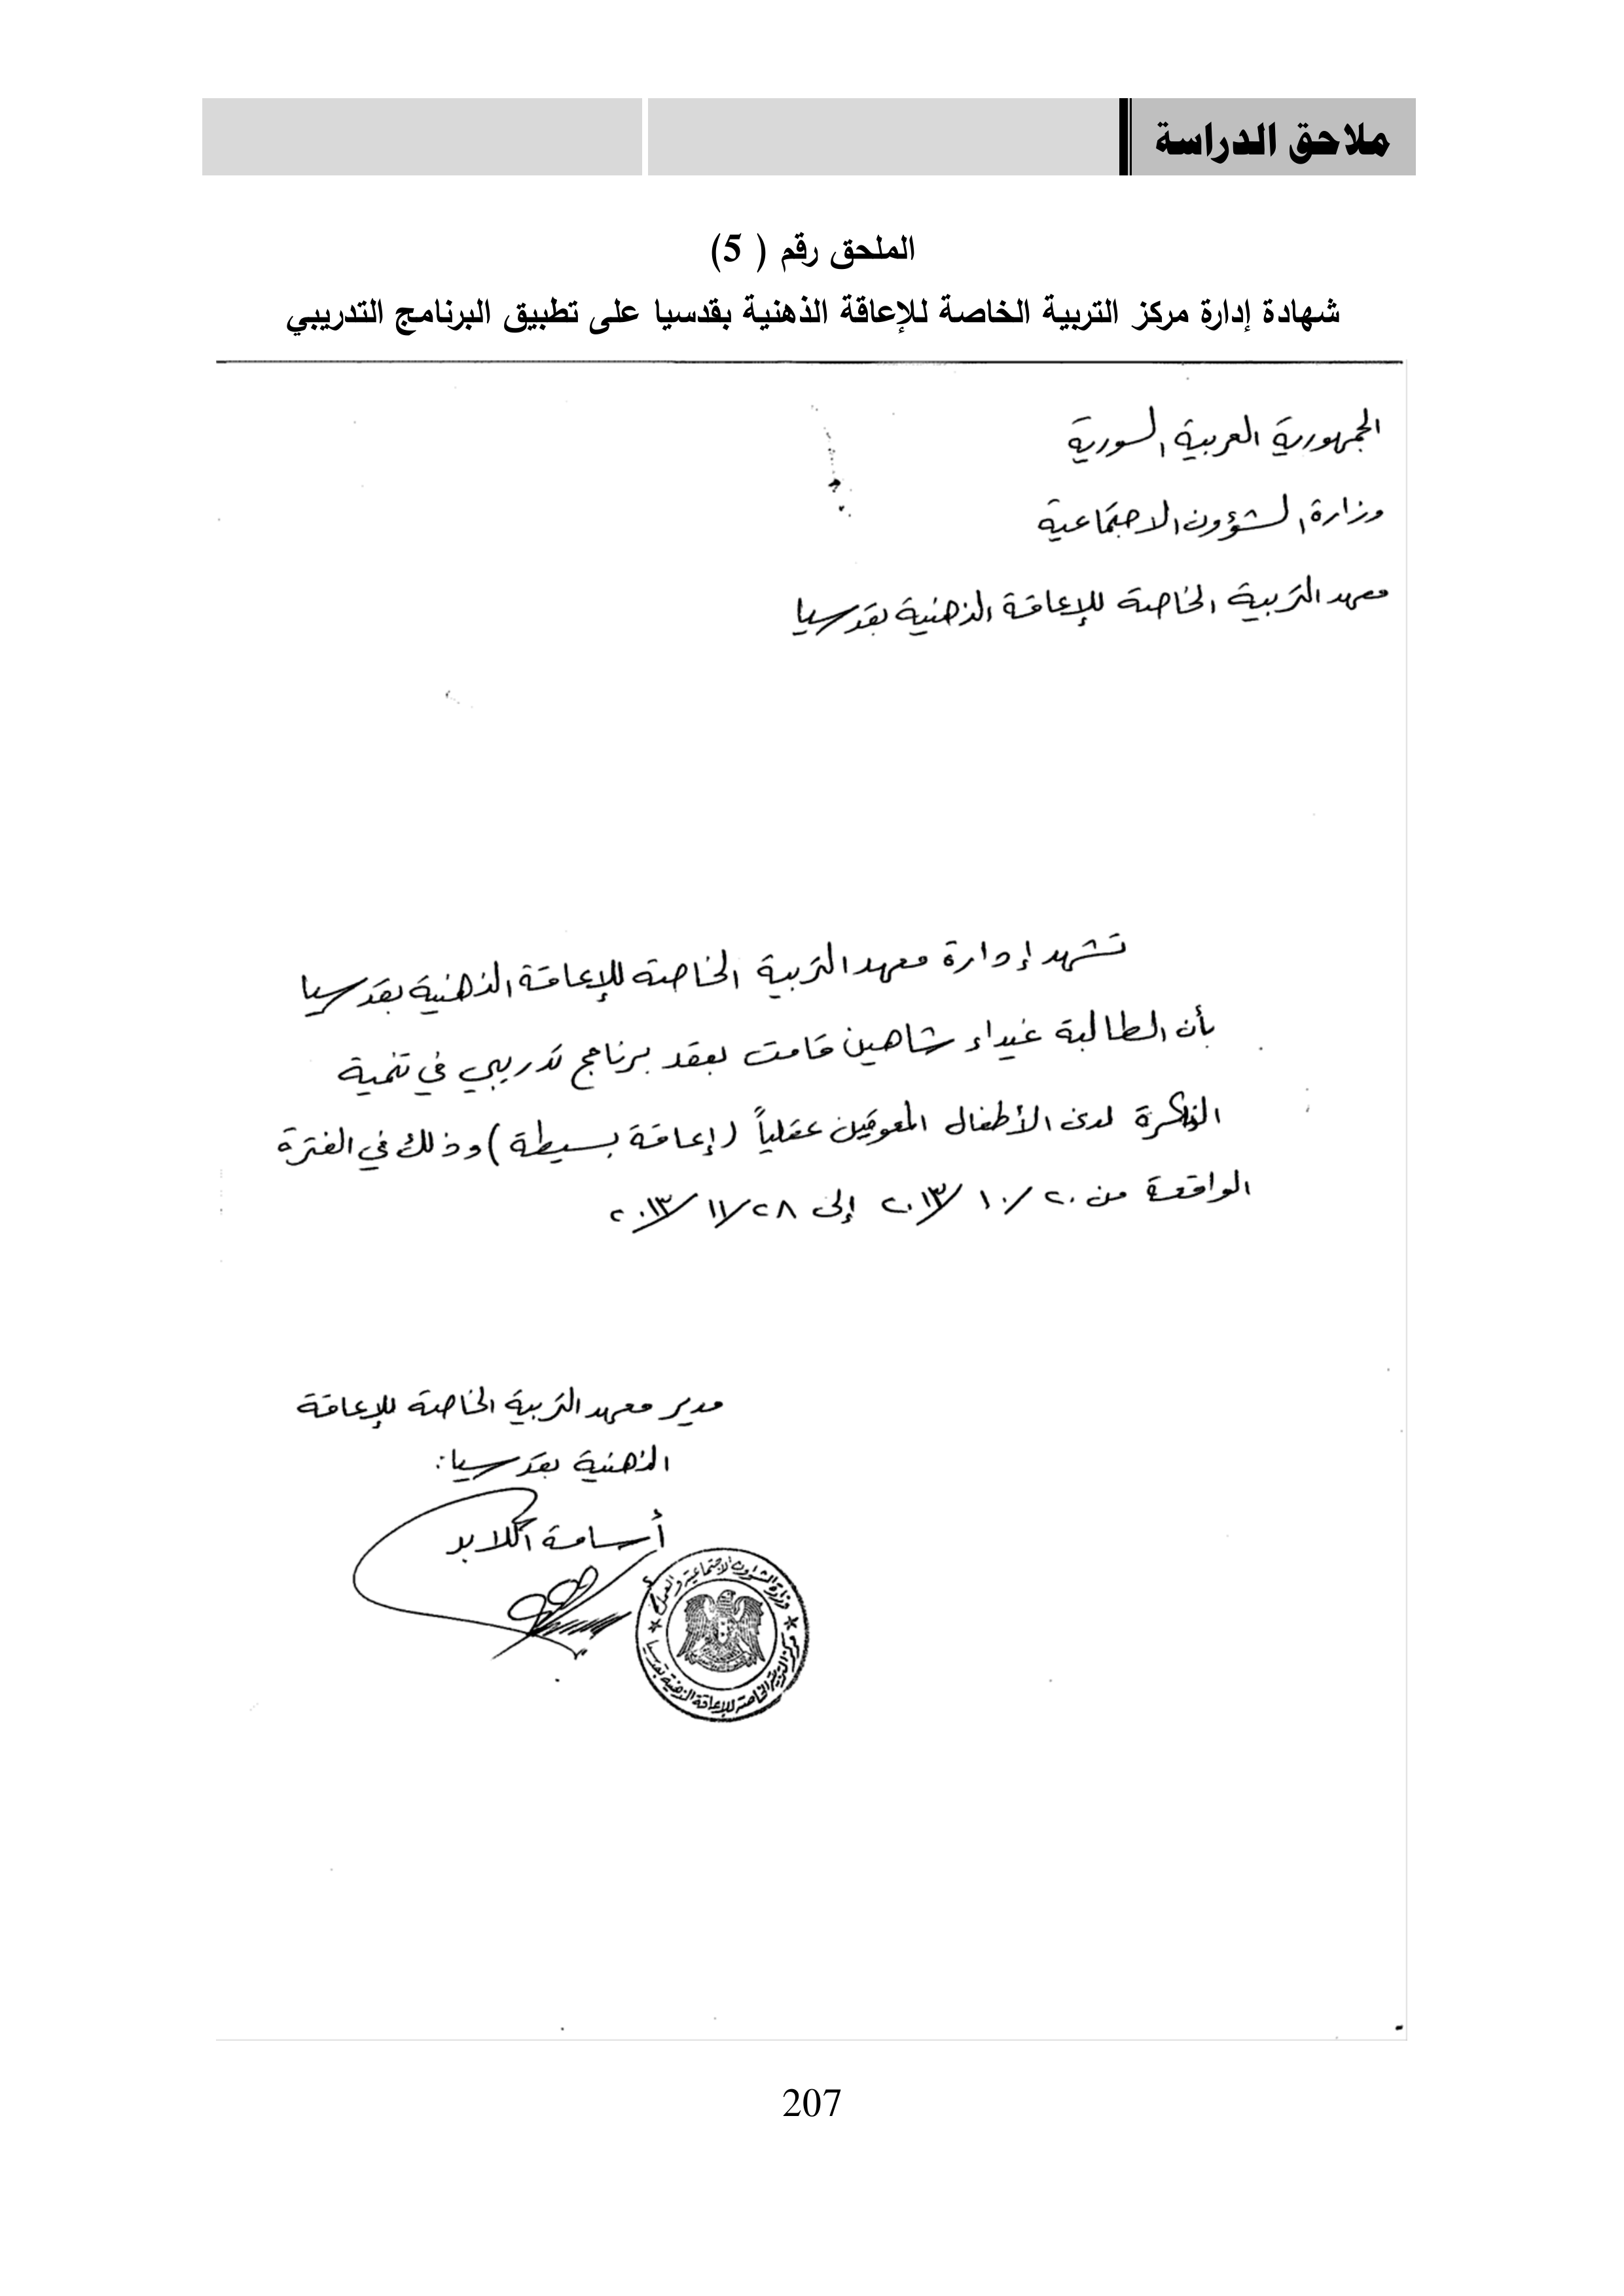 ملاحق الدراسة
الملحق رقم ( 5)
شهادة إدارة مركز التربية الخاصة للإعاقة الذهنية بقدسيا على تطبيق البرنامج التدريبي
الجمهورية العربية السورية
وزارة الشؤون الاجتماعية
معهد التربية الخاصة للإعاقة الذهنية بقدسيا
تشهد إدارة معهد التربية الخاصة للإعاقة الذهنية بقدسيا
بأن الطالبة غيداء شاهين قامت بعقد برنامج تدريبي في تنمية
الذاكرة لدى الأطفال المعوقين عقلياً (إعاقة بسيطة) وذلك في الفترة
الواقعة من ٢٠/١٠/٢٠١٣ إلى ٢٨/١١/٢٠١٣
مدير معهد التربية الخاصة للإعاقة
الذهنية بقدسيا:
أسامة
وزارة الشؤون الاجتماعية والعمل
مركز التربية الخاصة للإعاقة الذهنية بقدسيا
207